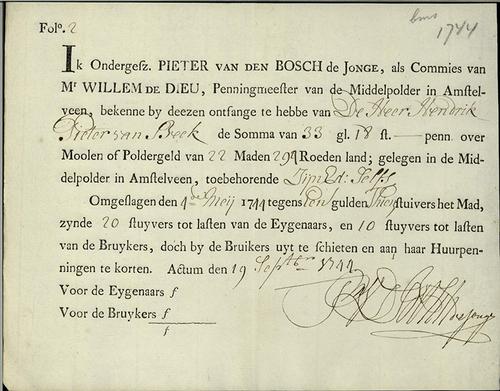 Folº. 2
bms
1744
Ik Ondergesz. PIETER VAN DEN BOSCH de Jonge, als Commies van
Mr WILLEM DE DIEU, Penningmeester van de Middelpolder in Amstel-
veen, bekenne by deezen ontfange te hebbe van De Heer Hendrik
Pieter van Breek de Somma van 33 gl. 18 st. — penn. over
Moolen of Poldergeld van 22 Maden 291 Roeden land; gelegen in de Mid-
delpolder in Amstelveen, toebehorende
Omgeslagen den 1e Meij 1744 tegens een gulden Thien stuivers het Mad,
zynde 20 stuyvers tot lasten van de Eygenaars, en 10 stuyvers tot lasten
van de Bruykers, doch by de Bruikers uyt te schieten en aan haar Huurpen-
ningen te korten. Actum den 19 Septbr 1744
Voor de Eygenaars f
Voor de Bruykers f
f
de Jonge